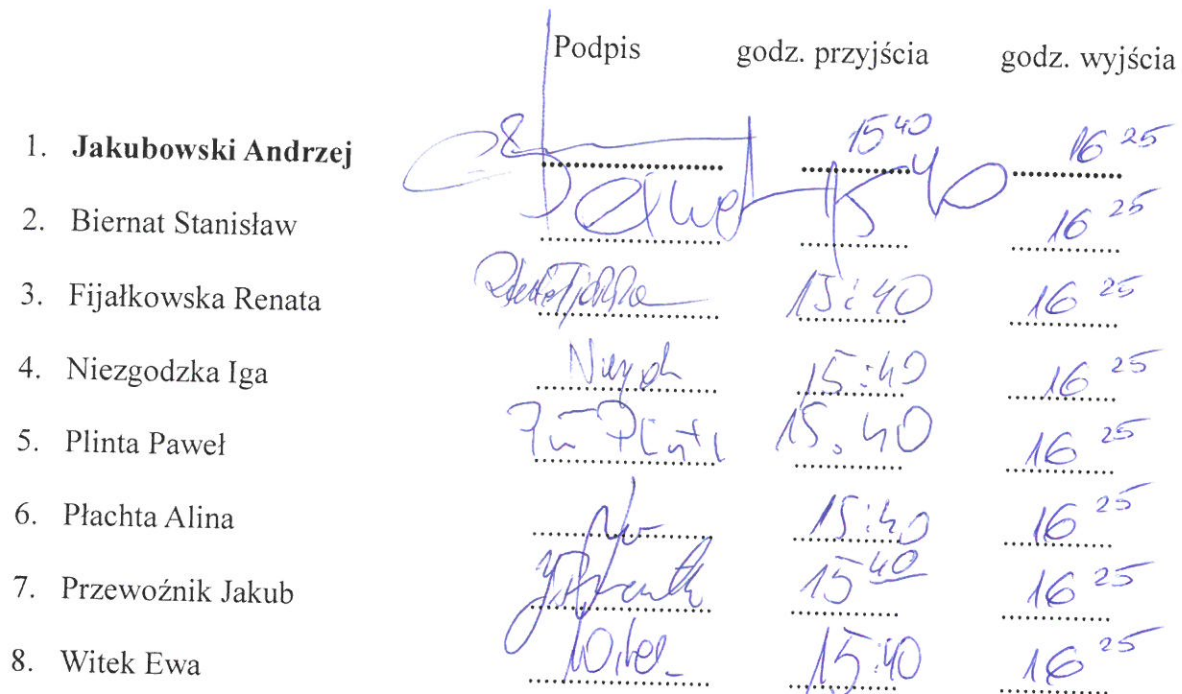 Podpis godz. przyjścia godz. wyjścia
1. Jakubowski Andrzej 15 40 16 25
2. Biernat Stanisław 15 40 16 25
3. Fijałkowska Renata 15:40 16 25
4. Niezgodzka Iga 15:40 16 25
5. Plinta Paweł 15.40 16 25
6. Płachta Alina 15:40 16 25
7. Przewoźnik Jakub 15 40 16 25
8. Witek Ewa 15:40 16 25